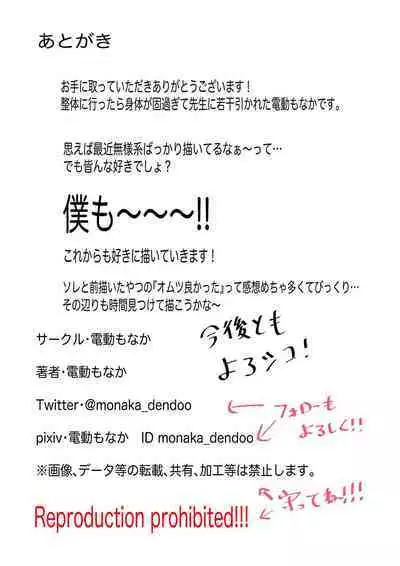 あとがき
お手に取っていただきありがとうございます！
整体に行ったら身体が固過ぎて先生に若干引かれた電動もなかです。
思えば最近無様系ばっかり描いてるなぁ〜って…
でも皆んな好きでしょ？
僕も〜〜〜!!
これからも好きに描いていきます！
ソレと前描いたやつの『オムツ良かった』って感想めちゃ多くてびっくり…
その辺りも時間見つけて描こうかな〜
今後とも
よろシコ！
サークル・電動もなか
著者・電動もなか
Twitter・@monaka_dendoo
フォローも
よろしく!!
pixiv・電動もなか　ID monaka_dendoo
※画像、データ等の転載、共有、加工等は禁止します。
Reproduction prohibited!!!
守ってね!!!